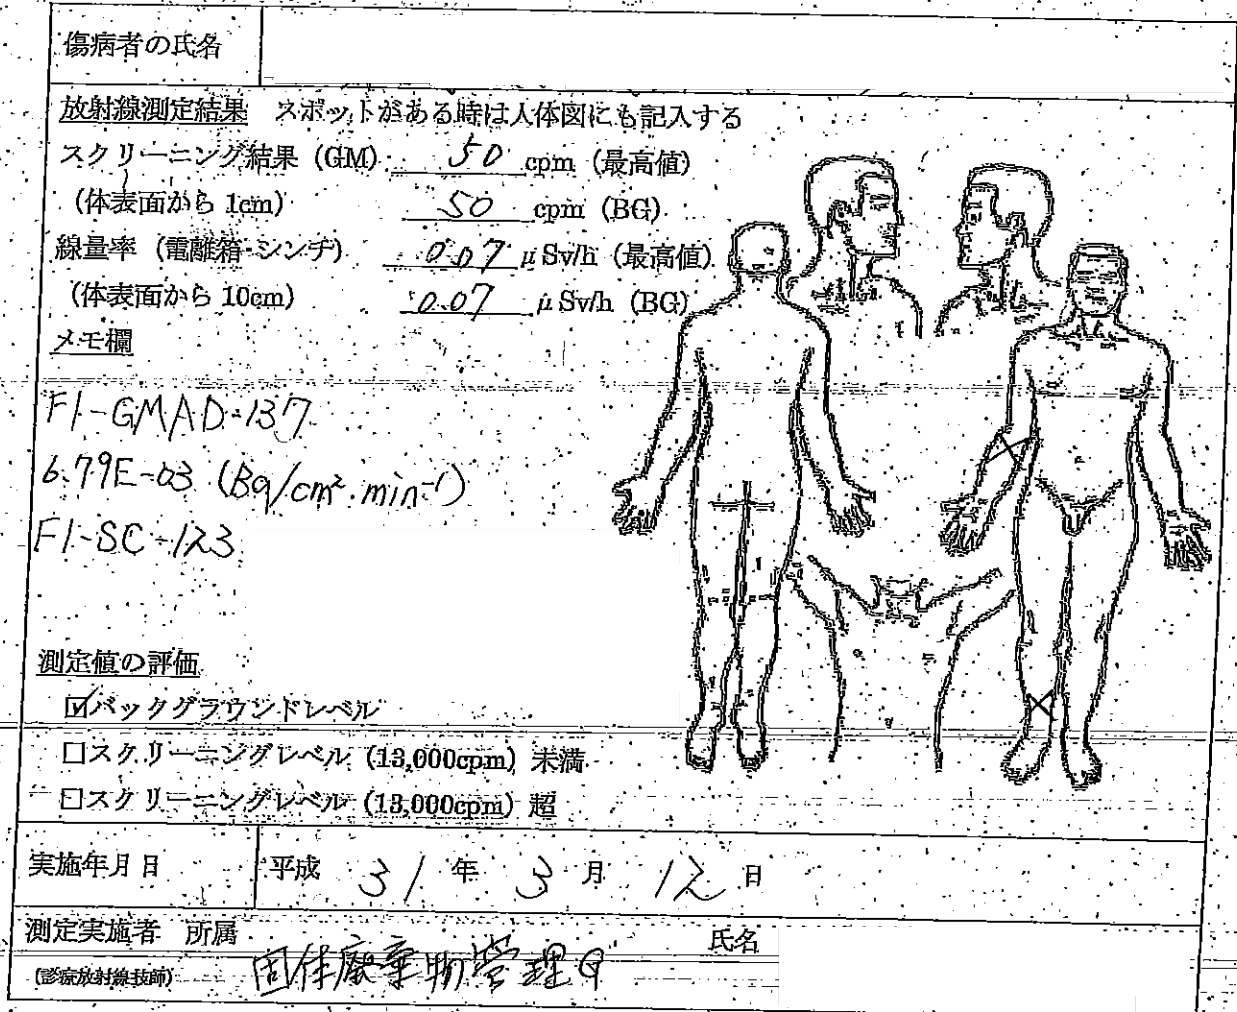 傷病者の氏名
放射線測定結果 スポットがある時は人体図にも記入する
スクリーニング結果 (GM) 50 cpm (最高値)
(体表面から 1cm) 50 cpm (BG)
線量率 (電離箱・シンチ) 0.07 μSv/h (最高値)
(体表面から 10cm) 0.07 μSv/h (BG)
メモ欄
F1-GMAD-137
6.79E-03 (Bq/cm²・min⁻¹)
F1-SC-123
測定値の評価
☑バックグラウンドレベル
□スクリーニングレベル (13,000cpm) 未満
□スクリーニングレベル (13,000cpm) 超
実施年月日 平成 31 年 3 月 12 日
測定実施者 所属 固体廃棄物管理G 氏名
(診療放射線技師)